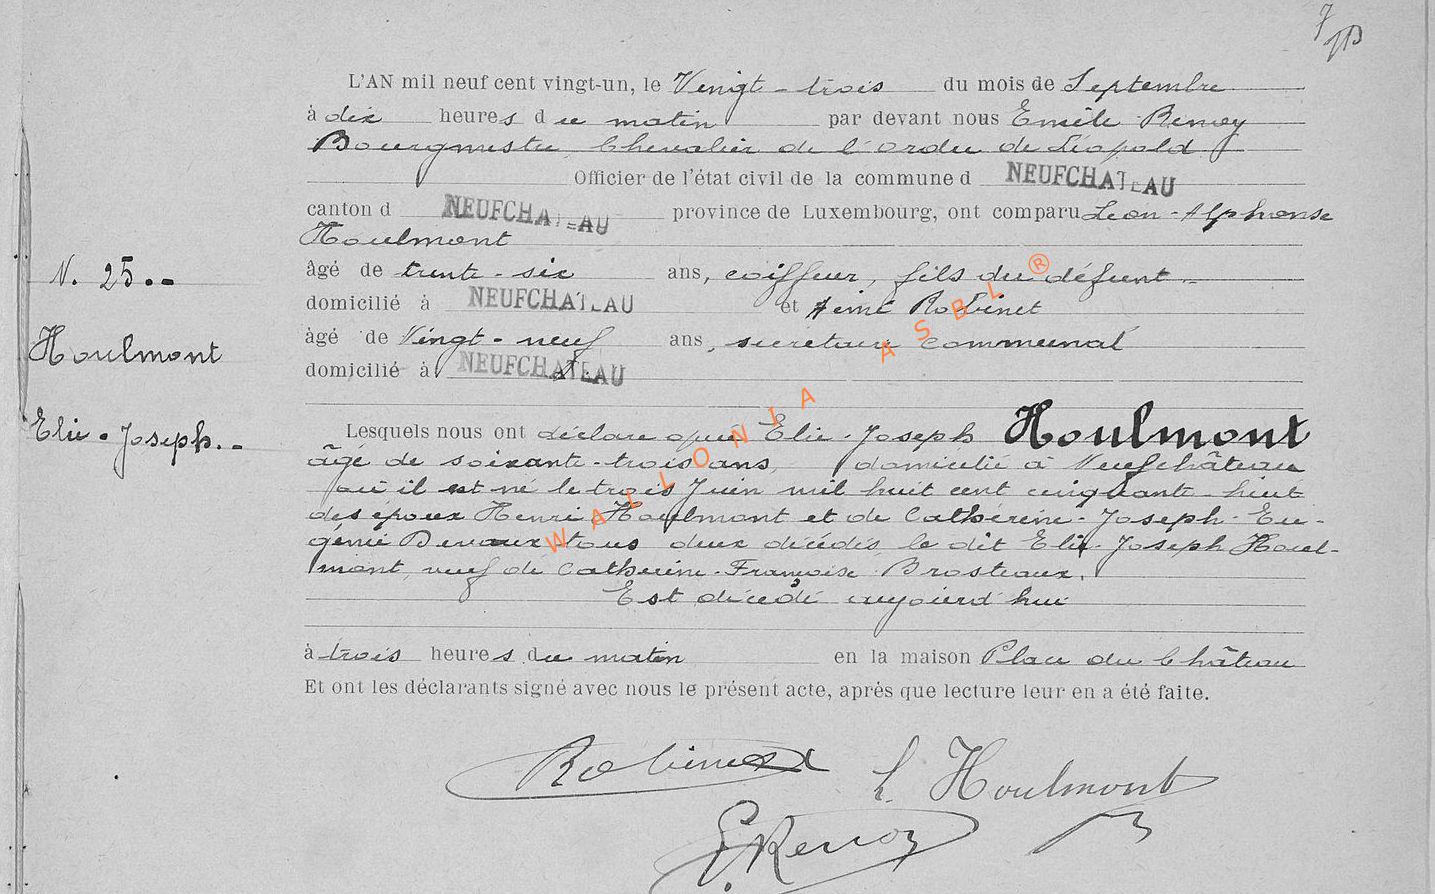 L'AN mil neuf cent vingt-un, le Vingt-trois du mois de Septembre
à dix heures du matin par devant nous Emile Renoy
Bourgmestre, Chevalier de l'Ordre de Léopold
Officier de l'état civil de la commune d NEUFCHATEAU
canton d NEUFCHATEAU province de Luxembourg, ont comparu Léon-Alphonse
Houlmont
N. 25
âgé de trente-six ans, coiffeur, fils du défunt
domicilié à NEUFCHATEAU et Aimé Robinet
Houlmont
âgé de Vingt-neuf ans, secrétaire communal
domicilié à NEUFCHATEAU
Elie-Joseph.
Lesquels nous ont déclaré que Elie-Joseph Houlmont
âgé de soixante-trois ans, domicilié à Neufchâteau
où il est né le trois Juin mil huit cent cinquante-huit
des époux Henri Houlmont et de Catherine-Joseph-Eu-
génie Devaux tous deux décédés, le dit Elie-Joseph Houl-
mont, veuf de Catherine-Françoise Brosteaux,
Est décédé aujourd'hui
à trois heures du matin en la maison Place du Château
Et ont les déclarants signé avec nous le présent acte, après que lecture leur en a été faite.
Robinet L. Houlmont
E. Renoy
WALLONIA ASBL ®